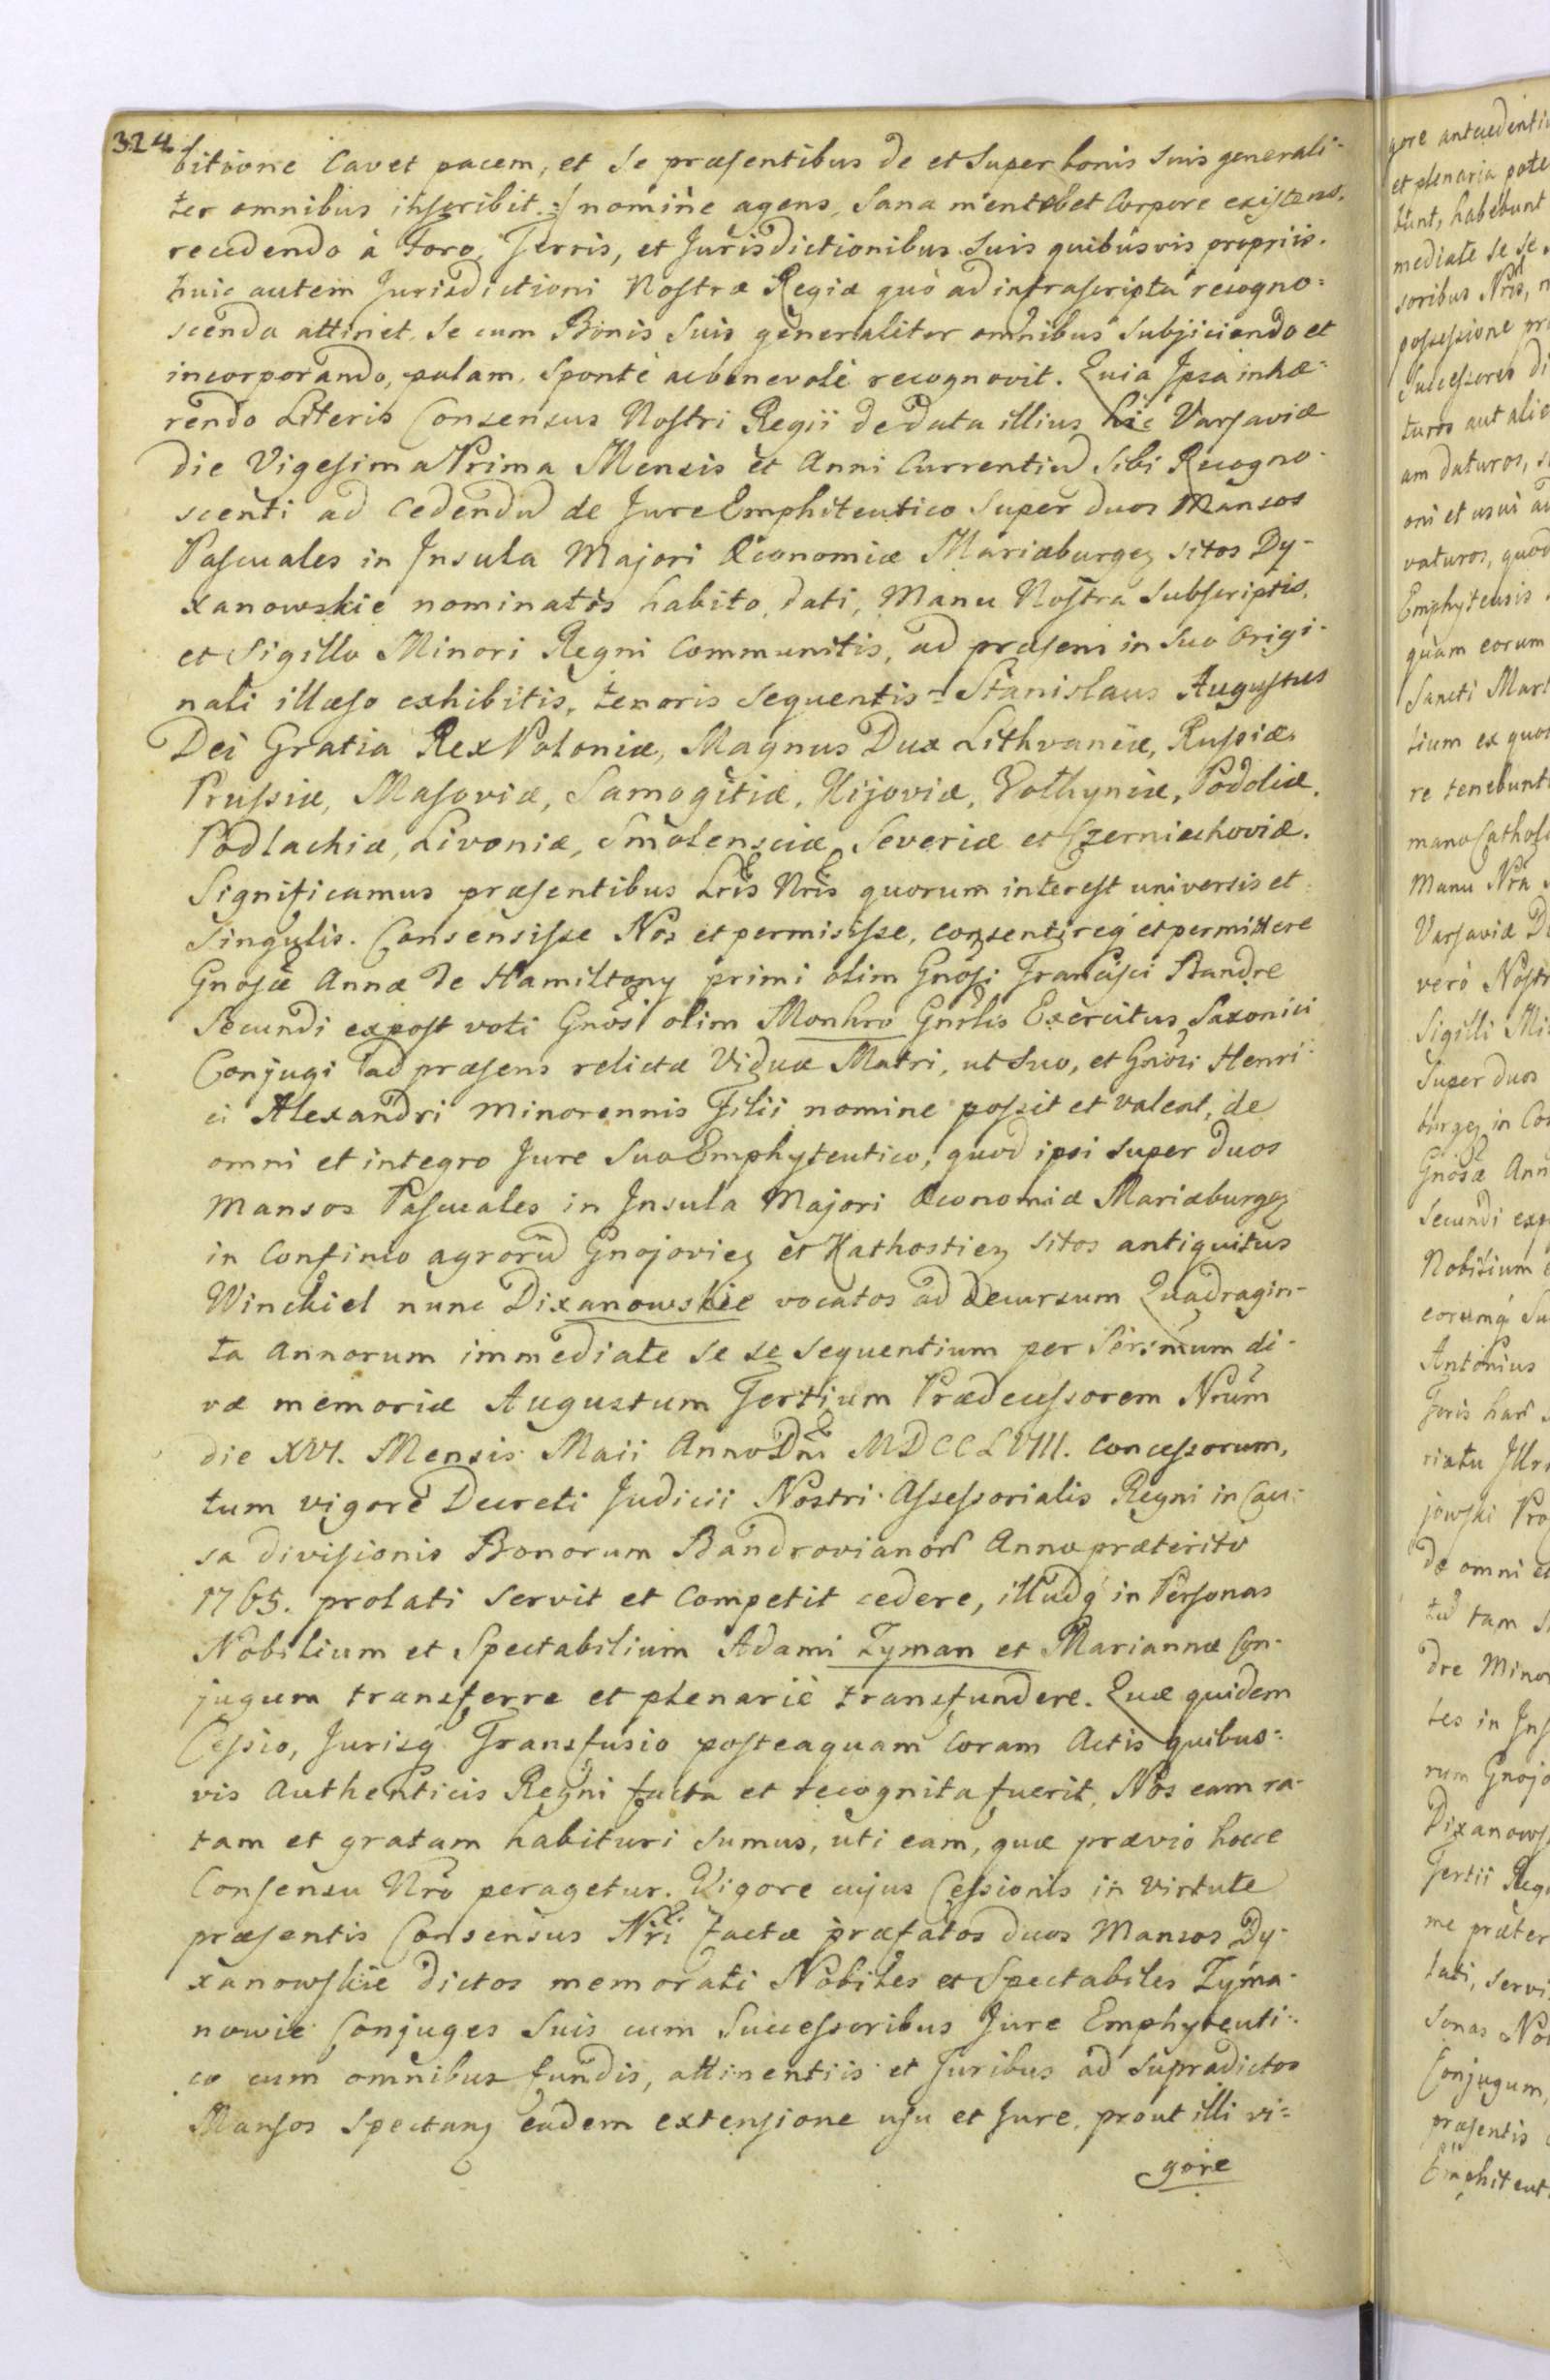 324
bitione Cavet pacem, et se præsentibus de et super bonis suis generali-
ter omnibus inscribit :/ nomine agens, Sana mente et Corpore existens,
recedendo à Foro, Terris, et Jurisdictionibus suis quibusvis propriis.
huic autem Jurisdictioni Nostræ Regiæ quò ad infrascripta recogno=
scenda attinet, se cum Bonis suis generaliter omnibus subjiciendo et
incorporando, palam, spontè ac benevolè recognovit. Quia Ipsa inhæ=
rendo Literis Consensus Nostri Regii de data illius hic Varsaviæ
die Vigesima Prima Mensis et Anni Currentiũ Sibi Recogno-
scenti ad Cedendũ de Jure Emphiteutico super duos Mansos
Pascuales in Insula Majori Œconomiæ Mariæburgeñ sitos Dy-
xanowskie nominatis habito, dati, Manu Nostra Subscriptis,
et Sigillo Minori Regni Communitis, ad præsens in suo Origi-
nali illæso exhibitis, tenoris sequentis = Stanislaus Augustus
Dei Gratia Rex Poloniæ, Magnus Dux Lithvaniæ, Russiæ,
Prussiæ, Masoviæ, Samogitiæ, Kijoviæ, Volhyniæ, Podoliæ,
Podlachiæ, Livoniæ, Smolensciæ, Severiæ et Czerniechoviæ.
Significamus præsentibus Lris Nris quorum interest universis et
singulis. Consensisse Nos et permisisse, consentireq́ et permittere
Gnosæ Annæ de Hamiltony primi olim Gnosi Francisci Bandre
Secundi expost voti Gnosi olim Monhro Gnrlis Exercitus Saxonici
Conjugi ad præsens relictæ Viduæ Matri, ut suo, et Gnosi Henri-
ci Alexandri minorennis Filii nomine possit et valeat, de
omni et integro Jure suo Emphyteutico, quod ipsi super duos
Mansos Pascuales in Insula Majori Œconomiæ Mariæburgeñ
in Confinio agrorũ Gnojovieñ et Kathostieñ sitos antiquitus
Winckiel nunc Dixanowskie vocatos ad decursum Quadragin-
ta Annorum immediate se se sequentium per Serṁum di-
væ memoriæ Augustum Tertium Prædecessorem Nrum
die XVI. Mensis Maii Anno Dni MDCCLVIII. concessorum,
tum vigore Decreti Judicii Nostri Assessorialis Regni in Cau-
sa divisionis Bonorum Bandrovianorũ Anno præterito
1765. prolati servit et Competit cedere, illudq́ in Personas
Nobilium et Spectabilium Adami Zyman et Mariannæ Con-
jugum transferre et plenariè transfundere. Quæ quidem
Cessio, Jurisq́ Transfusio posteaquam Coram Actis quibus=
vis Authenticis Regni facta et recognita fuerit, Nos eam ra-
tam et gratam habituri sumus, uti eam, quæ prævio hocce
Consensu Nro peragetur. Vigore cujus Cessionis in virtute
præsentis Consensus Nri factæ præfatos duos Mansos Dy-
xanowskie dictos memorati Nobiles et Spectabiles Zyma-
nowie Conjuges suis cum Successoribus Jure Emphyteuti-
co cum omnibus fundis, attinentiis et Juribus ad supradictos
Mansos Spectanñ eadem extensione usu et Jure, prout illi vi=
gore
gore antecedenti
et plenaria pote
bunt, habebunt
mediate se se
soribus Nris,
possessione
Successores di
turos aut alie
am daturos,
oni et usui
vaturos, quod
Emphyteusis
quam eorum
Sancti Mart
tium ex quo
re tenebunt
mano Cathol
Manu Nra
Varsaviæ D
verò Nost
Sigilli Mi
super duos
burgeñ in Co
Gnosæ Ann
secundi exp
Nobilium
eorumq́ Su
Antonius
Foris har
riatu Illr
jowski Pro
de omni et
tũ tam
dre Mino
tes in Ins
rum Gnojo
Dixanows
Tertii Reg
me præter
lati, servi
sonas No
Conjugum,
præsentis
Emphiteut